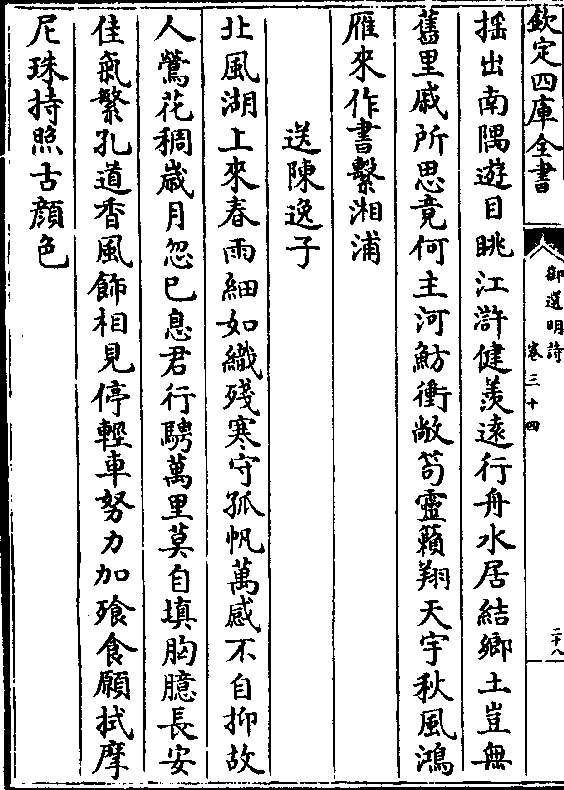 欽定四庫全書
御選明詩
卷三十四
二十八
揺出南隅遊目眺江滸健羨遠行舟水居結鄉土豈無
舊里戚所思竟何主河魴衝敝笱靈籟翔天宇秋風鴻
雁來作書繫湘浦
送陳逸子
北風湖上來春雨細如織殘寒守孤帆萬感不自抑故
人鶯花稠歲月忽已息君行騁萬里莫自填胸臆長安
佳氣繁孔道香風飾相見停輕車努力加飱食願拭摩
尼珠持照古顔色